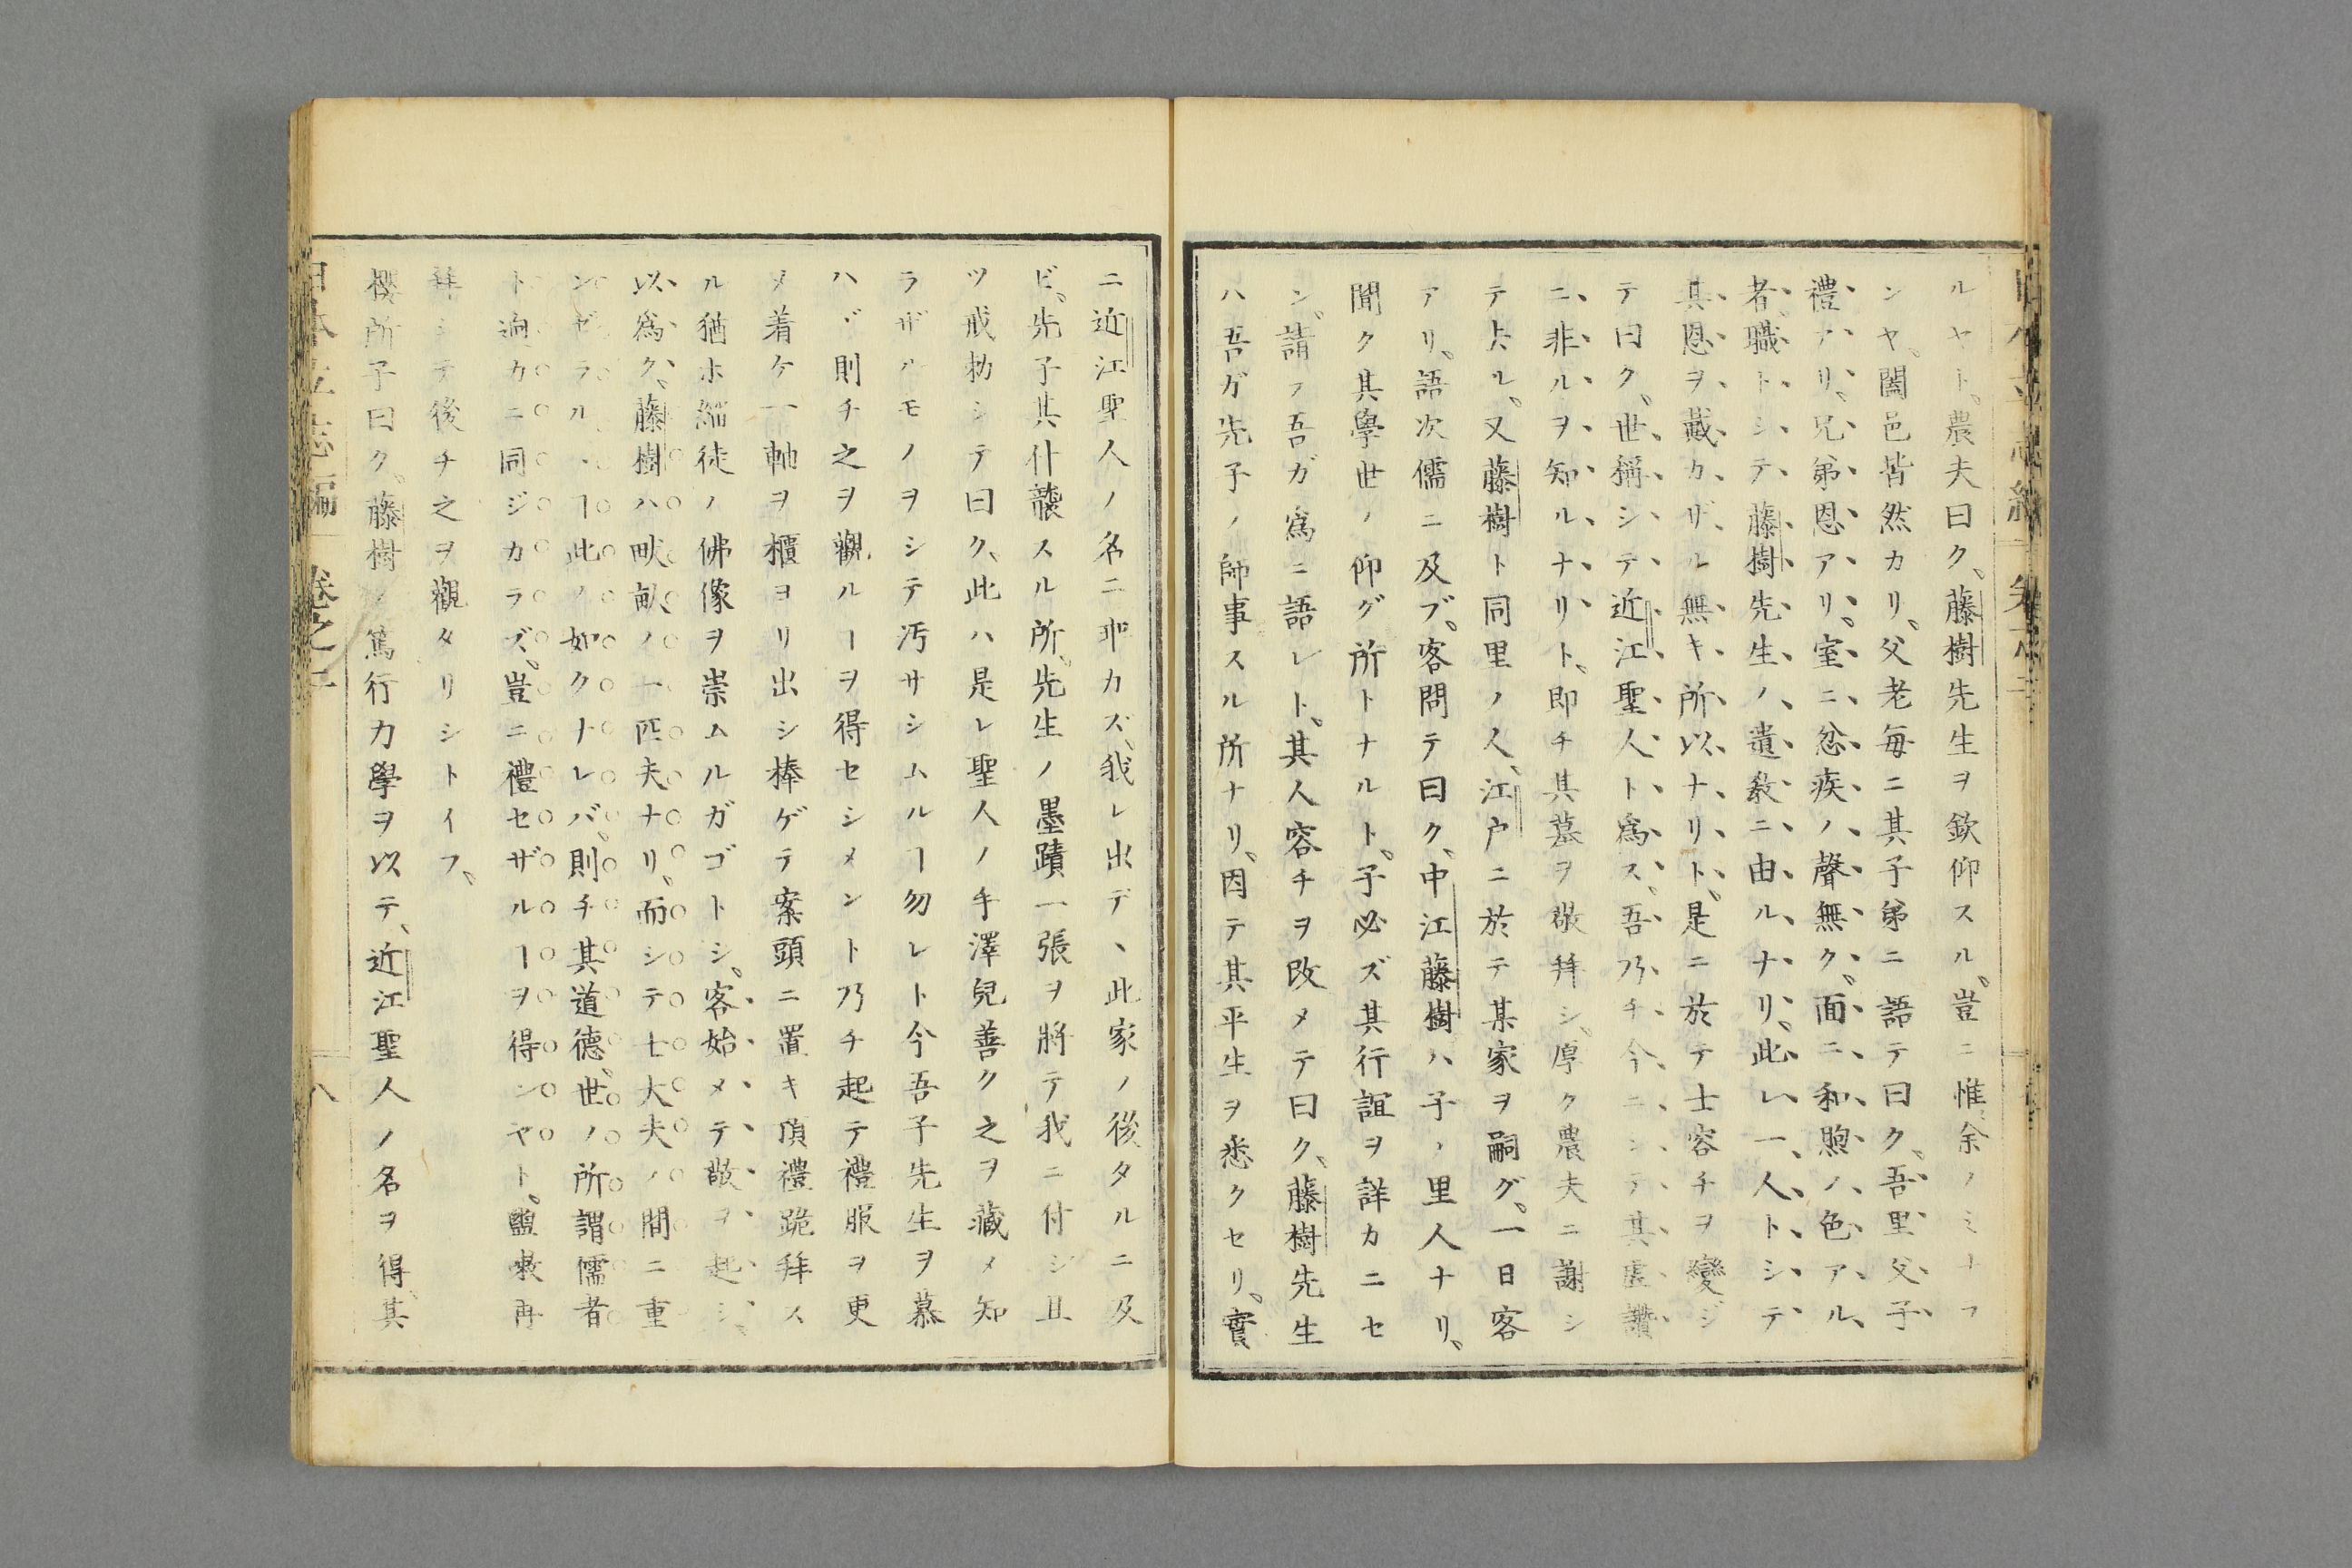 ルヤト、農夫曰ク、藤樹先生ヲ欽仰スル、豈ニ惟余ノミナラ
ンヤ、闔邑皆然カリ、父老毎ニ其子弟ニ語テ曰ク、吾里父子
禮アリ、兄弟恩アリ、室ニ忿疾ノ聲無ク、面ニ和煦ノ色アル
者、職トシテ藤樹先生ノ遺教ニ由ルナリ、此レ一人トシテ
其恩ヲ戴カザル無キ所以ナリト、是ニ於テ士容チヲ變ジ
テ曰ク、世稱シテ近江聖人ト爲ス、吾乃チ今ニシテ其虚讚
ニ非ルヲ知ルナリト、即チ其墓ヲ敬拜シ、厚ク農夫ニ謝シ
テ去ル、又藤樹ト同里ノ人、江戸ニ於テ某家ヲ嗣グ、一日客
アリ、語次儒ニ及ブ、客問テ曰ク、中江藤樹ハ子ノ里人ナリ、
聞ク其學世ノ仰グ所トナルト、子必ズ其行誼ヲ詳カニセ
ン、請フ吾ガ爲ニ語レト、其人容チヲ改メテ曰ク、藤樹先生
ハ吾ガ先子ノ師事スル所ナリ、因テ其平生ヲ悉クセリ、實
ニ近江聖人ノ名ニ耻カズ、我レ出デヽ此家ノ後タルニ及
ビ、先子其什襲スル所、先生ノ墨蹟一張ヲ將テ我ニ付シ且
ツ戒勑シテ曰ク、此ハ是レ聖人ノ手澤兒善ク之ヲ藏メ知
ラザルモノヲシテ汚サシムルヿ勿レト今吾子先生ヲ慕
ハヾ則チ之ヲ觀ルヿヲ得セシメント乃チ起テ禮服ヲ更
メ着ケ一軸ヲ櫃ヨリ出シ捧ゲテ案頭ニ置キ頂禮跪拜ス
ル猶ホ緇徒ノ佛像ヲ崇ムルガゴトシ、客始メテ敬ヲ起シ、
以爲ク、藤樹ハ畎畝ノ一匹夫ナリ、而シテ士大夫ノ間ニ重
ンゼラルヽヿ此ノ如クナレバ、則チ其道德、世ノ所謂儒者
ト逈カニ同ジカラズ、豈ニ禮セザルヿヲ得ンヤト、盥嗽再
拜シテ後チ之ヲ觀タリシトイフ、
櫻所子曰ク、藤樹ノ篤行力學ヲ以テ、近江聖人ノ名ヲ得、其
日本立志編 卷之二 八